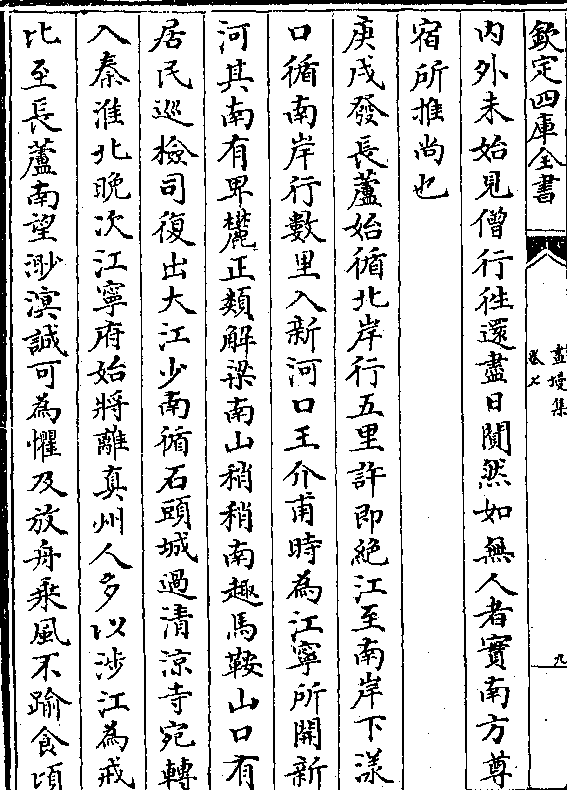 欽定四庫全書
畫墁集
卷七
九
内外未始見僧行徃還盡日閴然如無人者實南方尊
宿所推尚也
庚戌發長蘆始循北岸行五里許即絶江至南岸下漾
口循南岸行數里入新河口王介甫時為江寧所開新
河其南有卑麓正類解梁南山稍稍南趣馬鞍山口有
居民巡檢司復出大江少南循石頭城過清涼寺宛轉
入秦淮北晩次江寧府始將離真州人多以涉江為戒
比至長蘆南望渺溟誠可為懼及放舟乘風不踰食頃